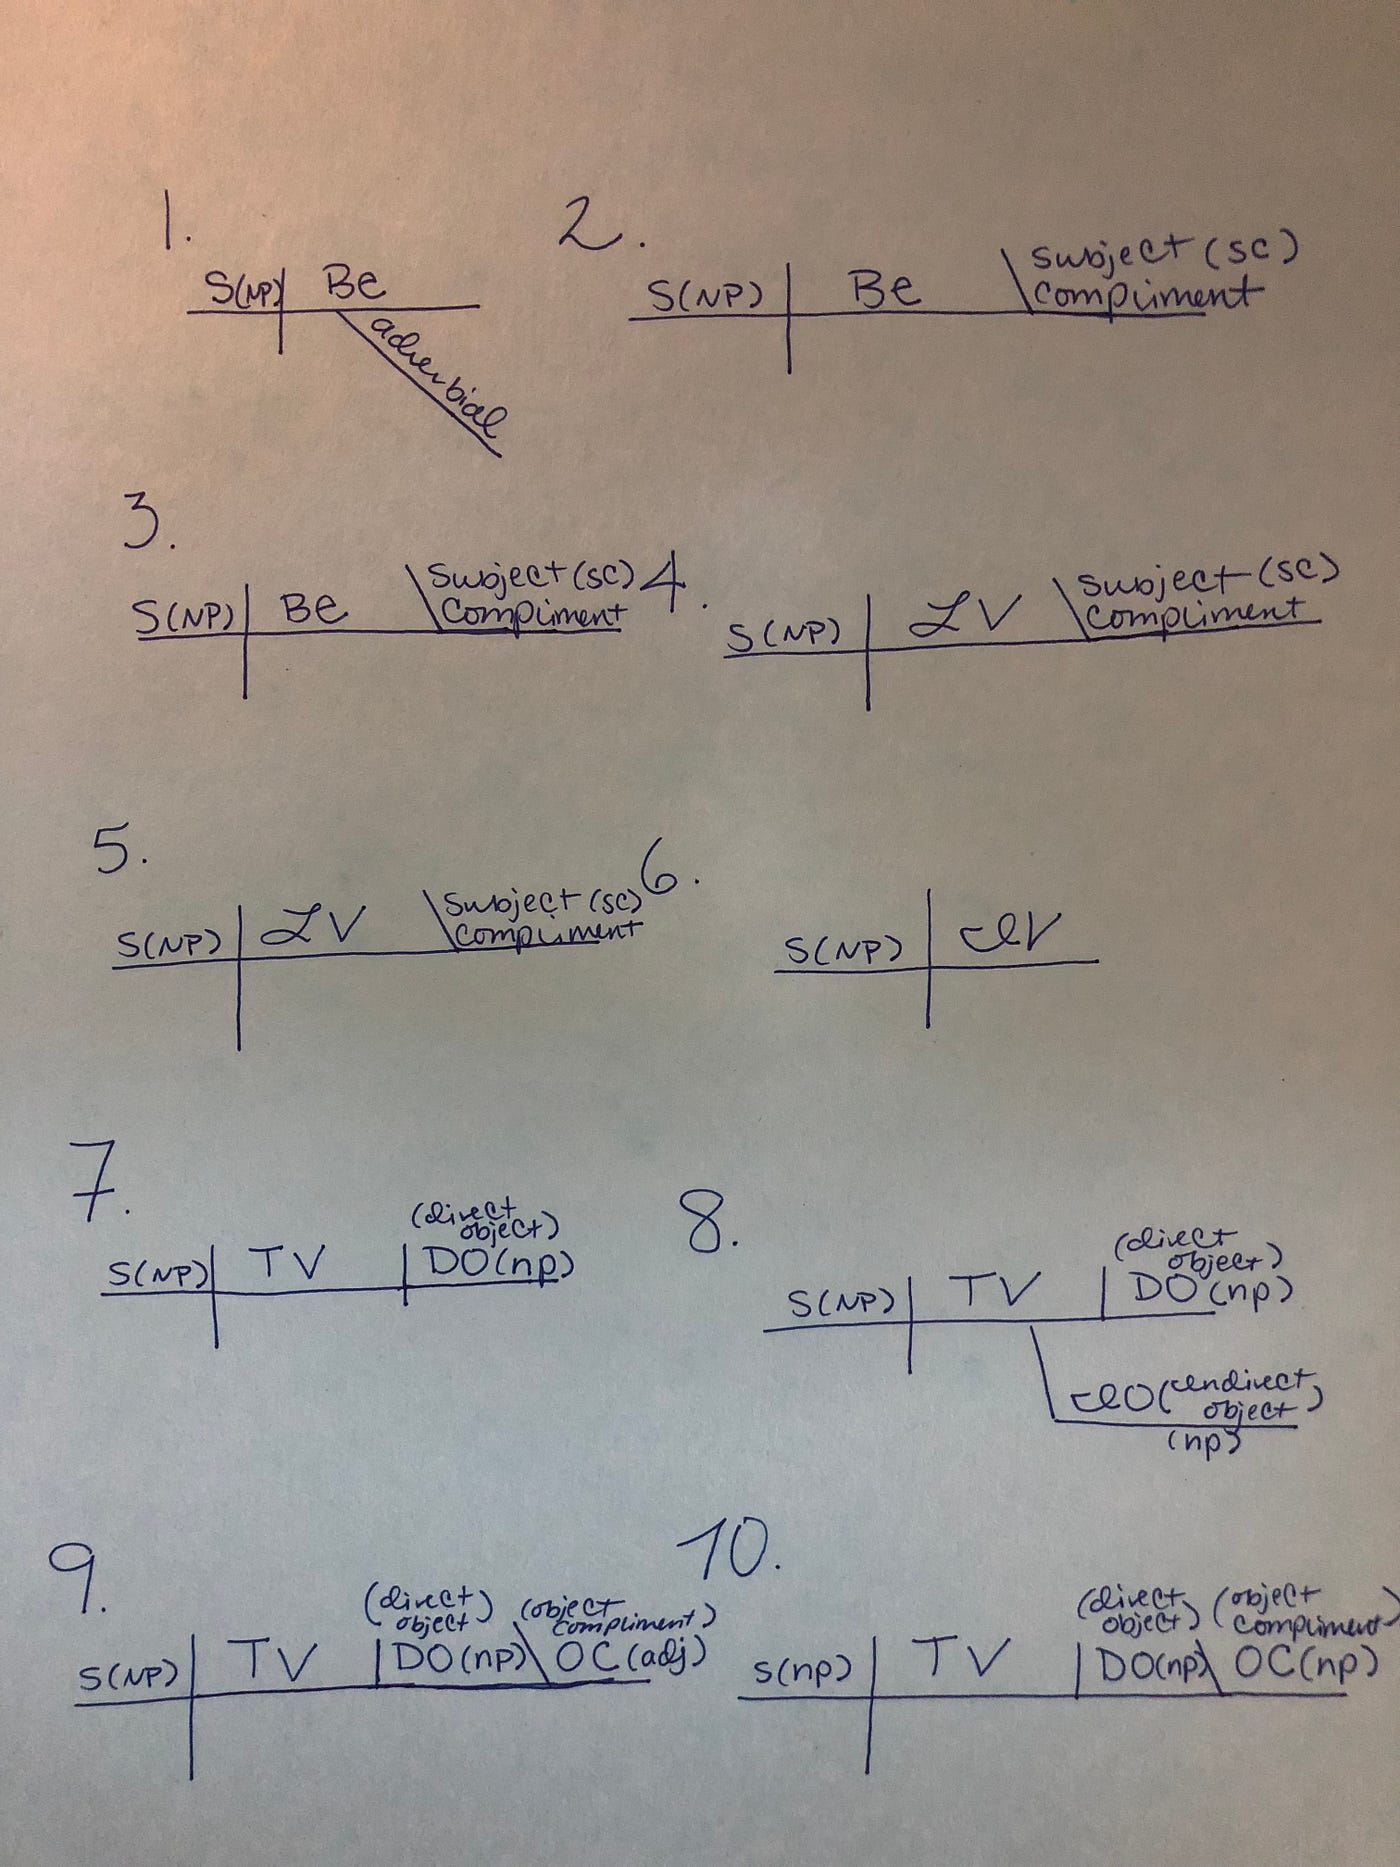 1.
S(NP) Be
adverbial
2.
S(NP) Be subject (sc)
compliment
3.
S(NP) Be subject (sc)
compliment
4.
S(NP) LV subject (sc)
compliment
5.
S(NP) LV subject (sc)
compliment
6.
S(NP) IV
7.
(direct
object)
S(NP) TV DO(np)
8.
(direct
object)
S(NP) TV DO(np)
IO(indirect
object)
(np)
9.
(direct
object)
(object
compliment)
S(NP) TV DO(np) OC(adj)
10.
(direct
object)
(object
compliment)
S(np) TV DO(np) OC(np)